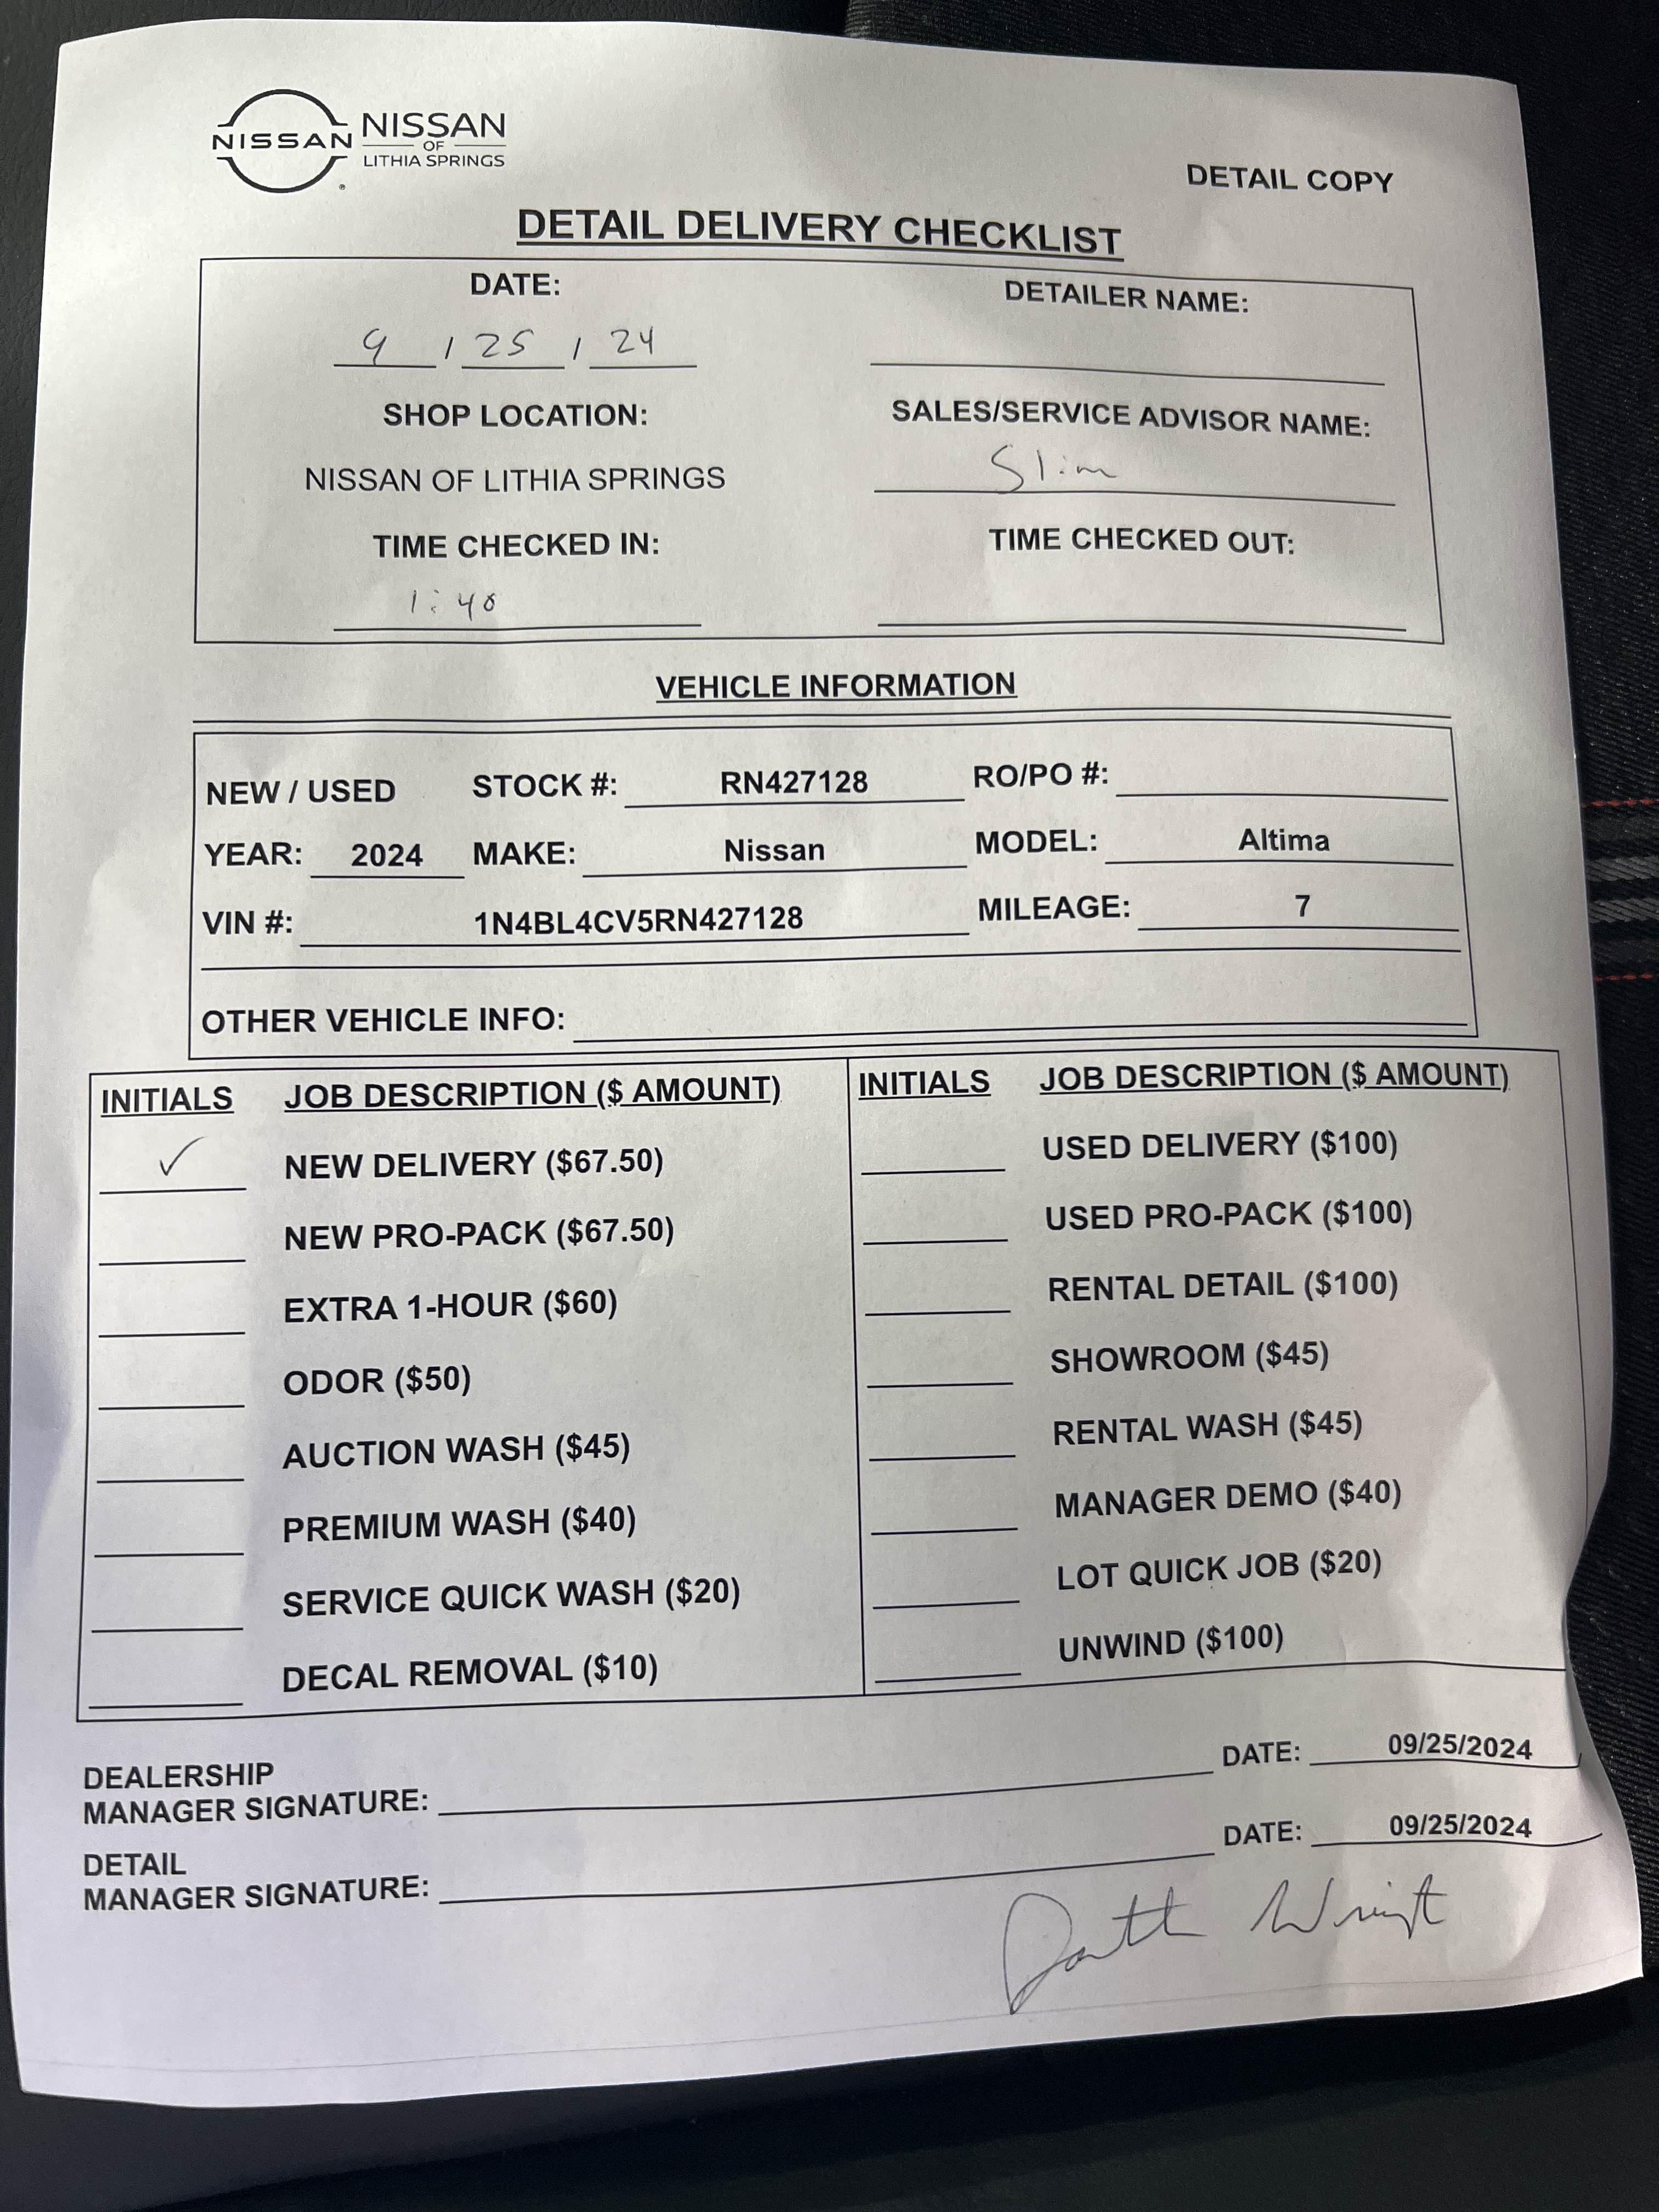 NISSAN NISSAN
OF
LITHIA SPRINGS
DETAIL COPY
DETAIL DELIVERY CHECKLIST
DATE: DETAILER NAME:
9 / 25 / 24
SHOP LOCATION: SALES/SERVICE ADVISOR NAME:
NISSAN OF LITHIA SPRINGS Slim
TIME CHECKED IN: TIME CHECKED OUT:
1:40
VEHICLE INFORMATION
NEW / USED STOCK #: RN427128 RO/PO #:
YEAR: 2024 MAKE: Nissan MODEL: Altima
VIN #: 1N4BL4CV5RN427128 MILEAGE: 7
OTHER VEHICLE INFO:
INITIALS JOB DESCRIPTION ($ AMOUNT) INITIALS JOB DESCRIPTION ($ AMOUNT)
✓ NEW DELIVERY ($67.50) USED DELIVERY ($100)
NEW PRO-PACK ($67.50) USED PRO-PACK ($100)
EXTRA 1-HOUR ($60) RENTAL DETAIL ($100)
ODOR ($50) SHOWROOM ($45)
AUCTION WASH ($45) RENTAL WASH ($45)
PREMIUM WASH ($40) MANAGER DEMO ($40)
SERVICE QUICK WASH ($20) LOT QUICK JOB ($20)
DECAL REMOVAL ($10) UNWIND ($100)
DEALERSHIP
MANAGER SIGNATURE: DATE: 09/25/2024
DETAIL
MANAGER SIGNATURE: DATE: 09/25/2024